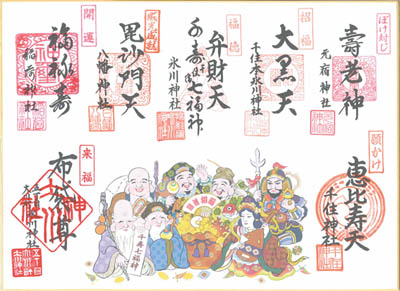 ぼけ封じ
壽老神
元宿神社
招福
大黒天
千住本氷川神社
福徳
弁財天
千寿七福神
氷川神社
毘沙門天
八幡神社
開運
福禄寿
稲荷神社
願かけ
恵比寿天
千住神社
来福
布袋尊
千寿七福神